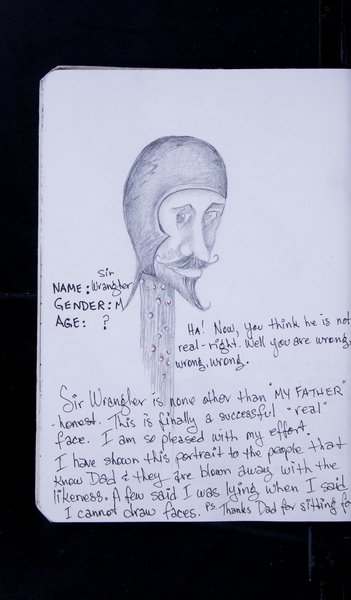 Sir
NAME: Wrangler
GENDER: M
AGE: ?
HA! Now, you think he is not
real-right. Well you are wrong,
wrong, wrong.
Sir Wrangler is none other than "MY FATHER"
- honest. This is finally a successful "real"
face. I am so pleased with my effort.
I have shown this portrait to the people that
know Dad & they are blown away with the
likeness. A few said I was lying when I said
I cannot draw faces. Ps. Thanks Dad for sitting fo